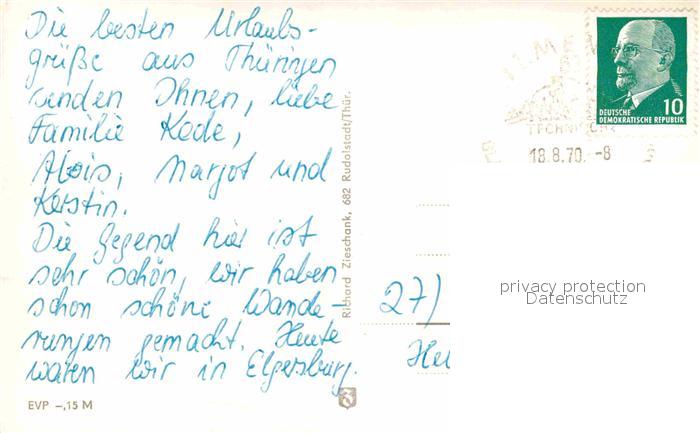 Die besten Urlaubs-
grüße aus Thüringen
senden Ihnen, liebe
Familie Kode,
Alois, Margot und
Kerstin.
Die Gegend hier ist
sehr schön, wir haben
schon schöne Wande-
rungen gemacht. Heute
waren wir in Elgersburg.
EVP -,15 M
Richard Zieschank, 682 Rudolstadt/Thür.
TECHNISCHE
18.8.70.-8
10
DEUTSCHE
DEMOKRATISCHE REPUBLIK
27)
privacy protection
Datenschutz